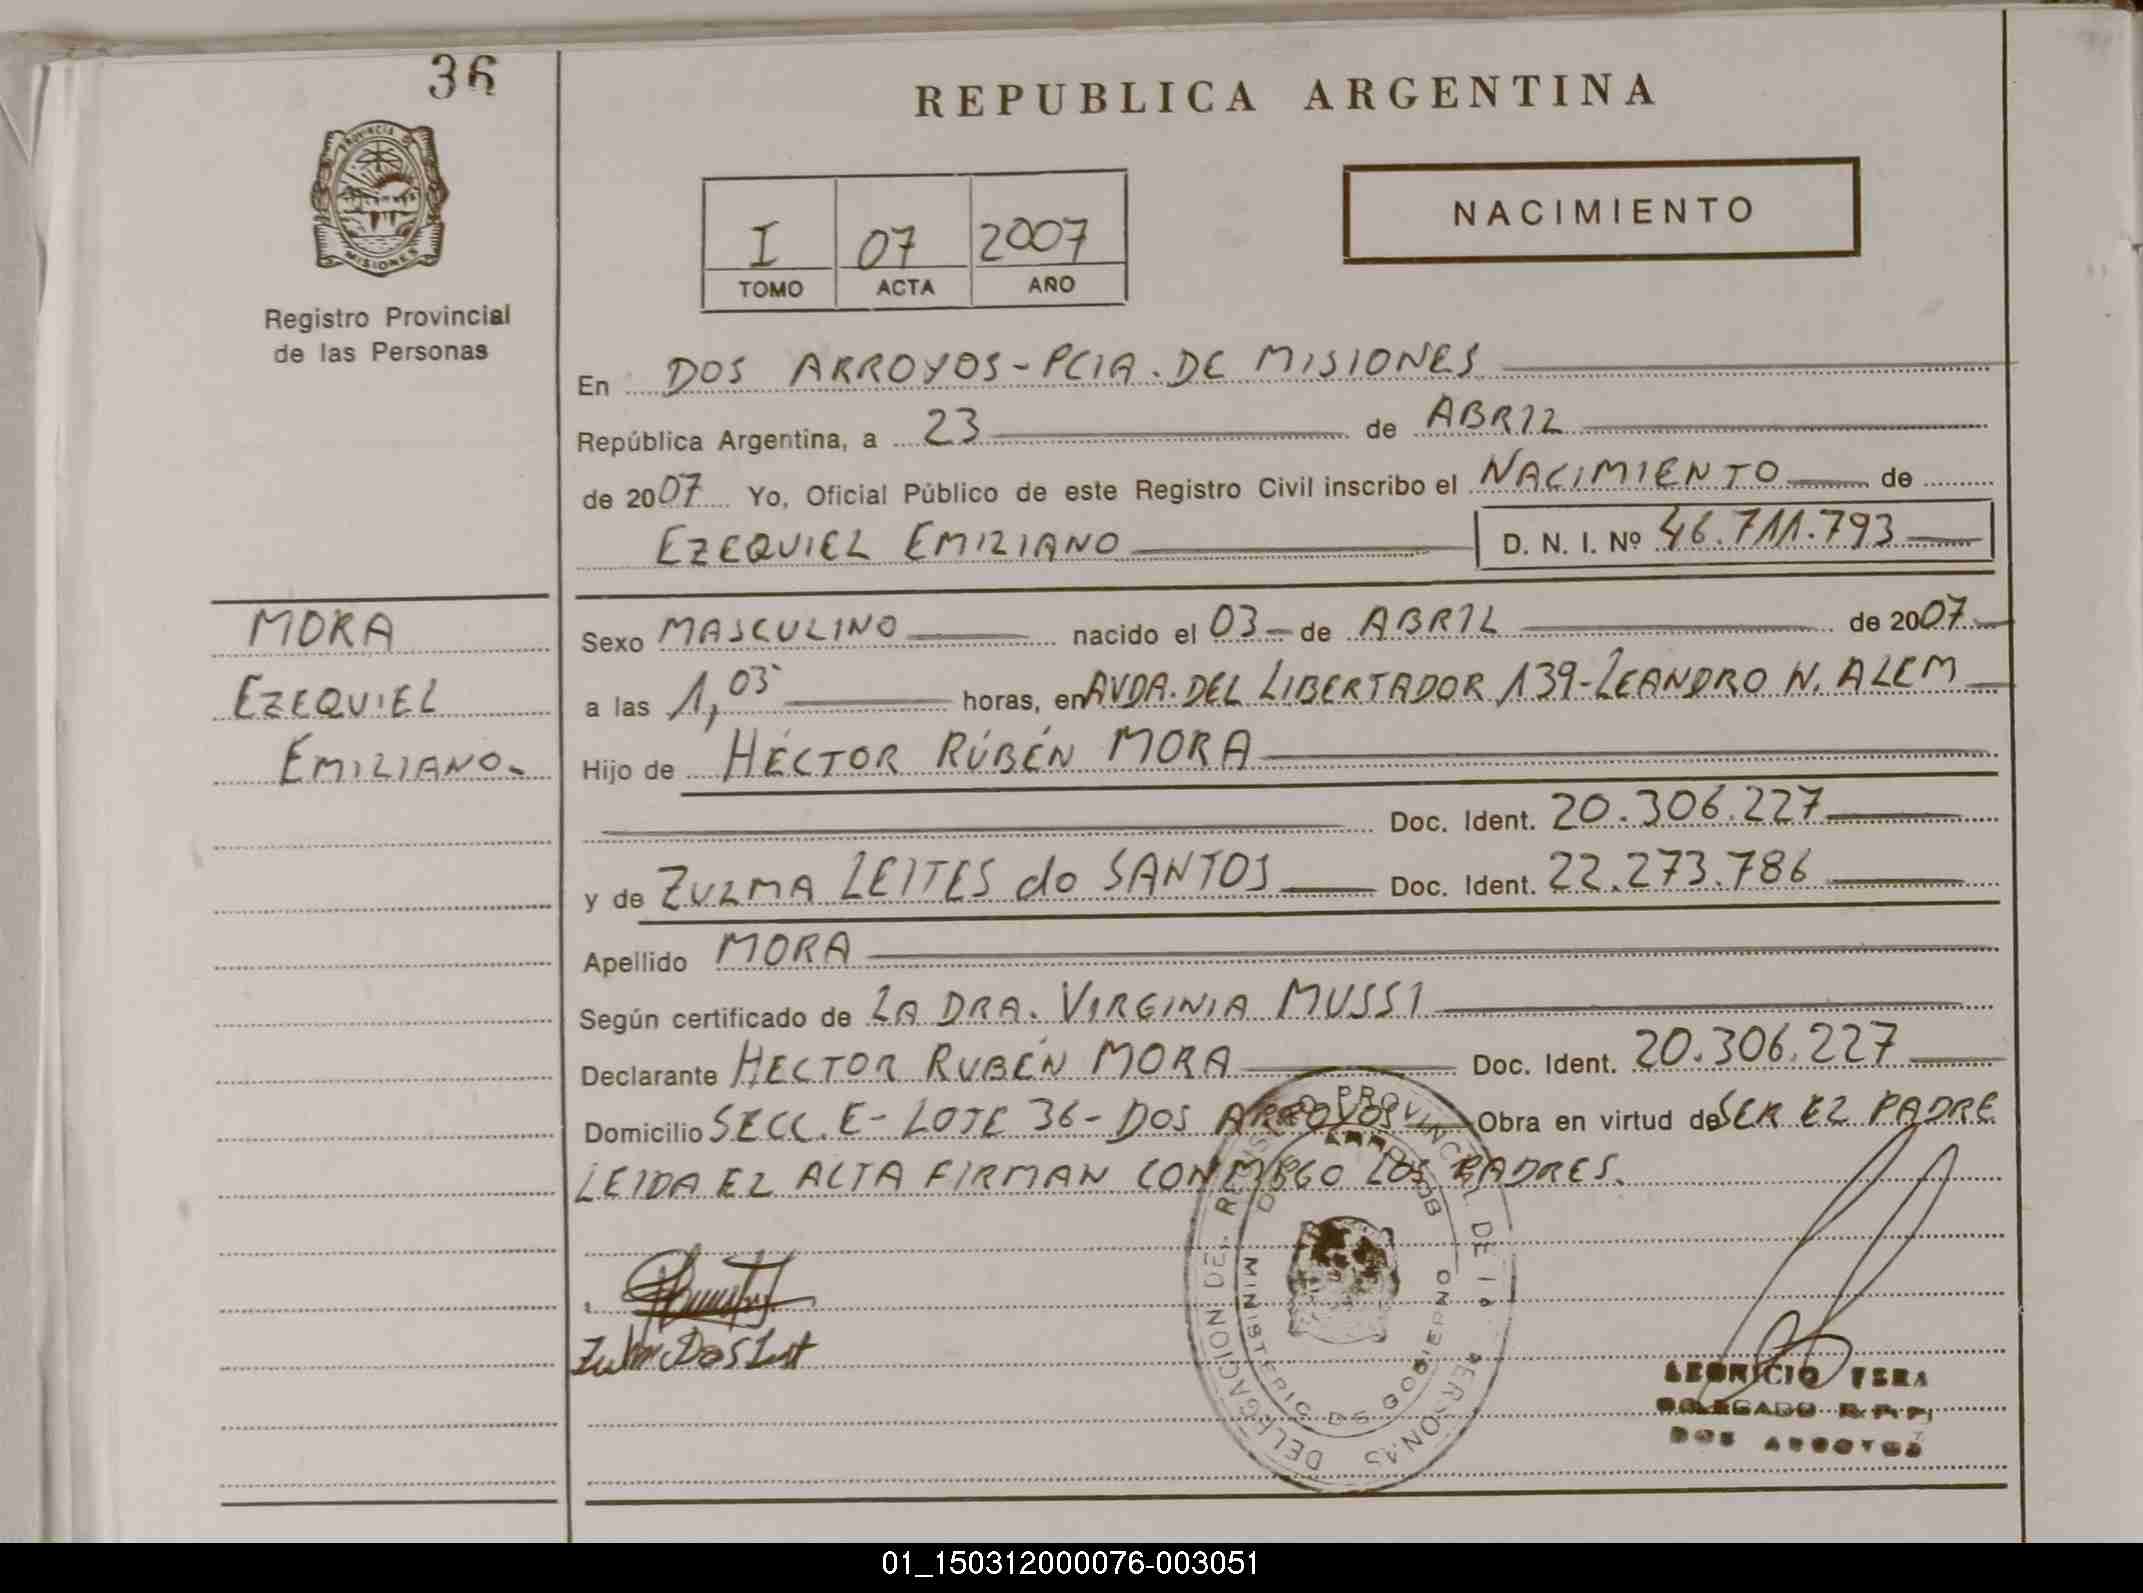 36
PROVINCIA
MISIONES
Registro Provincial
de las Personas
REPUBLICA ARGENTINA
NACIMIENTO
I 07 2007
TOMO ACTA AÑO
En DOS ARROYOS - PCIA. DE MISIONES
República Argentina, a 23 de ABRIL
de 2007 Yo, Oficial Público de este Registro Civil inscribo el NACIMIENTO de
EZEQUIEL EMILIANO D. N. I. Nº 46.711.793
MORA
EZEQUIEL
EMILIANO.-
Sexo MASCULINO nacido el 03 - de ABRIL de 2007
a las 1,03 horas, en AVDA. DEL LIBERTADOR 139 - LEANDRO N. ALEM
Hijo de HÉCTOR RÚBÉN MORA
Doc. Ident. 20.306.227
y de ZULMA LEITES do SANTOS Doc. Ident. 22.273.786
Apellido MORA
Según certificado de LA DRA. VIRGINIA MUSSI
Declarante HECTOR RUBÉN MORA Doc. Ident. 20.306.227
Domicilio SECC. E - LOTE 36 - DOS ARROYOS Obra en virtud de SER EL PADRE
LEIDA EL ACTA FIRMAN CONMIGO LOS PADRES.
DELEGACION DEL REGISTRO PROVINCIAL DE LAS PERSONAS
DOS ARROYOS
MINISTERIO DE GOBIERNO
LEONICIO VERA
DELEGADO R.P.P.
DOS ARROYOS
01_150312000076-003051